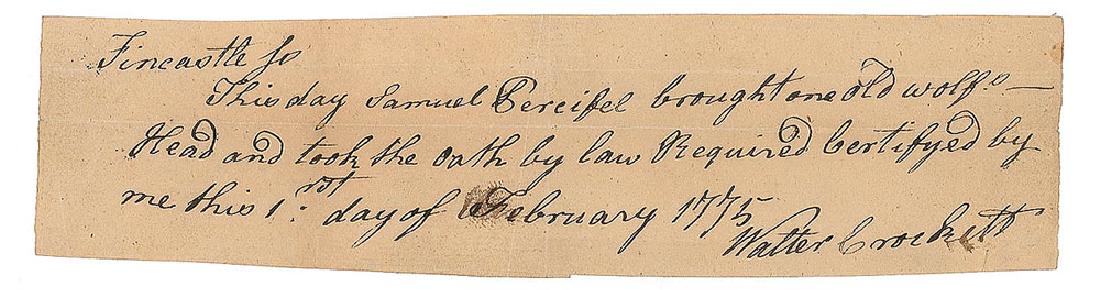 Fincastle Sc
This day Samuel Percifel brought one old wolfs
Head and took the oath by law Required Certifyed by
me this 1.st day of February 1775
Walter Crockett